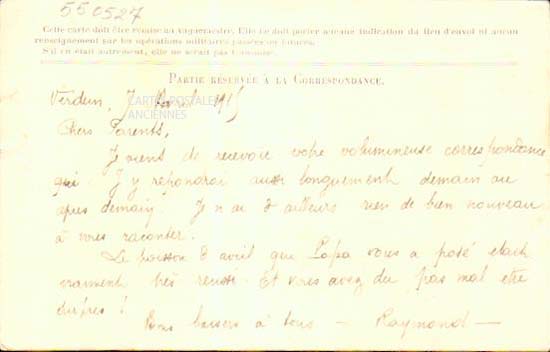 550527
Cette carte doit être remise au vaguemestre. Elle ne doit porter aucune indication du lieu d'envoi ni aucun
renseignement sur les opérations militaires passées ou futures.
S'il en était autrement, elle ne serait pas transmise.
PARTIE RÉSERVÉE A LA CORRESPONDANCE.
Verdun, 7 Avril 1915
CARTES POSTALES
ANCIENNES
Chers Parents,
Je viens de recevoir votre volumineuse correspondance
J'y répondrai aussi longuement demain ou
apres demain. Je n'ai d'ailleurs rien de bien nouveau
à vous raconter.
Le poisson d'avril que Papa vous a posé etait
vraiment très reussi. Et vous avez du pas mal etre
Bons baisers à tous — Raymond —